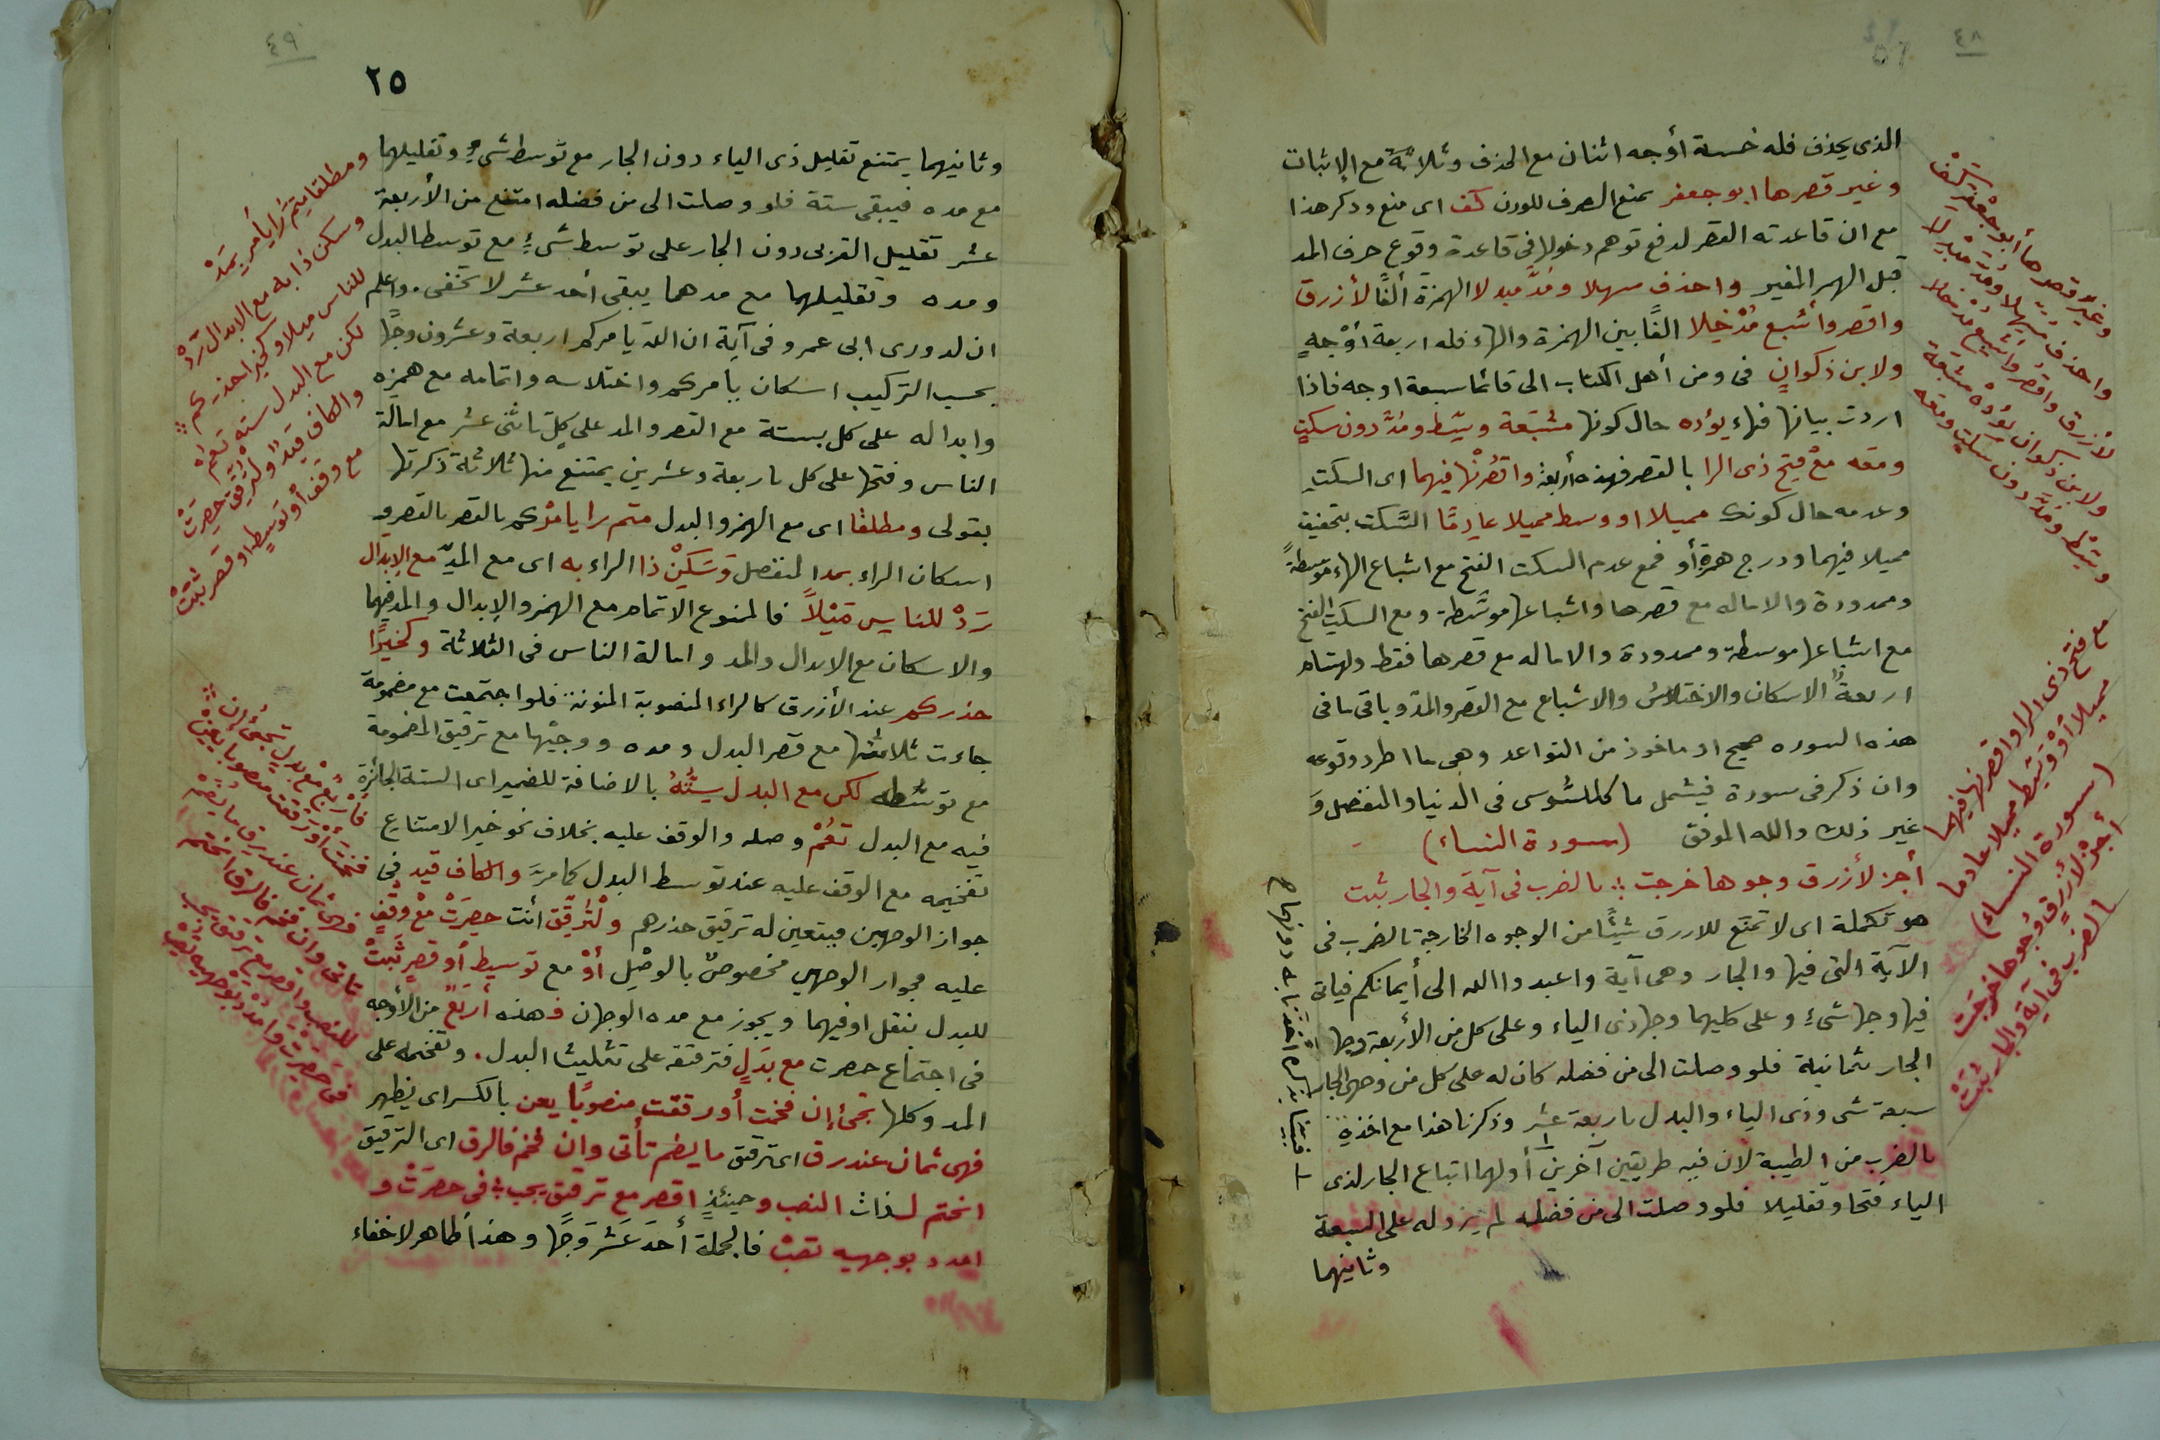 ٤٨
الذى يحذف فله خمسة أوجه اثنان مع الحذف وثلاثة مع الإثبات
وغير قصرها ابو جعفر بمنع الصرف للوزن كف اى منع وذكر هذا
مع ان قاعدته القصر لدفع توهم دخولها فى قاعدة وقوع حرف المد
قبل الهمز المغير واحذف مسهلا ومُدّ مبدلا الهمزة ألفًا لأزرق
واقصر وأشبع مُدْخِلا الفًا بين الهمزة والهاء فله اربعة أوْجهٍ
ولابن ذكوانٍ فى ومن أهل الكتاب الى قائما سبعة اوجه فاذا
اردت بيانها فهاء يؤده حال كونها مشبَعة وسِّط ومُدَّ دون سكتٍ
ومعه معْ فتح ذى الرا بالقصر فهذه أربعة واقصُرْنها فيهما اى السكت
وعدمه حال كونك مميلا او وسط مميلا عادِمًا السَّكت بتخفيف
مميلا فيهما ودرج همزة أو فمع عدم السكت الفتح مع اشباع الهاء موسطةً
وممدودة والاماله مع قصرها واشباعها موسَّطة ومع السكت الفتح
مع اشباعها موسطة وممدودة والاماله مع قصرها فقط ولهشام
اربعةٌ الاسكان والاختلاسُ والاشباع مع القصر والمد وباقى ما فى
هذه السوره صحيح او ماخوذ من القواعد وهى ما اطرد وقوعه
وان ذكر فى سورة فيشمل ما كالسّوسى فى الدنيا والمنفصل وَ
غير ذلك والله الموفق (سورة النساء)
أجز لأزرق وجوها خرجت ؞ بالضرب فى آية والجار ثبت
هو تكملة اى لا تمنع للازرق شيئًا من الوجوه الخارجة بالضرب فى
الآية التى فيها والجار وهى آية واعبدوا الله الى أيمانكم فياتى
فيها وجها شىءٍ وعلى كليهما وجها ذى الياء وعلى كل من الأربعة وجها
الجار ثمانية فلو وصلت الى من فضله كان له على كل من وجهى الجار
سبعة شىء وذى الياء والبدل باربعة عشر وذكرنا هذا مع اخذهِ
بالضرب من الطيبة لأن فيه طريقين آخرين أولهما اتباع الجار لذى
الياء فتحا وتقليلا فلو وصلت الى من فضله لم يزد له على السبعة
وثانيهما
وغيرَ قصرها أبو جعْفَرِ كفّ
واحذف مسهلا ومُدَّ مبْدِلا
لأزرق واقصر واشبع مُدْخلا
ولابن ذكوان يؤدِّهْ مشبَعة
وسِّطْ ومُدَّ دون سكت ومعه
مع فتح ذى الرا واقصرنها فيهما
مميلا أوْ وسّط مميلا عادما
(سورة النساء)
أجز لأزرقٍ وُجوها خرجَت
بالضرب فى آية والجار ثبَتْ
٤٩
٢٥
وثانيهما يمتنع تقليل ذى الياء دون الجار مع توسط شىءٍ وتقليلهما
مع مده فيبقى ستة فلو وصلت الى من فضله امتنع من الأربعة
عشر تقليل القربى دون الجار على توسط شىءٍ مع توسط البدل
ومده وتقليلهما مع مدهما يبقى أحد عشر لا تخفى. واعلم
ان لدورى ابى عمرو فى آية ان الله يأمركم اربعة وعشرون وجهًا
بحسب التركيب اسكان يأمركم واختلاسه واتمامه مع همزه
وابداله على كل بستة مع القصر والمد على كلٍ باثنى عشر مع امالة
الناس وفتحها على كل باربعة وعشرين يمتنع منها ثلاثة ذكرتها
بقولى ومطلقا اى مع الهمز والبدل متم را يأمرْكم بالقصر بالقصر و
اسكان الراء بمد المنفصل وَسَكِنْ ذا الراء به اى مع المدِّ مع الإبدال
رَدْ للناسِ مَيْلاً فالممنوع الاتمام مع الهمز والإبدال والمد فيهما
والاسكان مع الابدال والمد وامالة الناس فى الثلاثة وكخيرًا
حذركم عند الأزرق كالراء المنصوبة المنونة فلو اجتمعت مع مضمومة
جاءت ثلاثتها مع قصر البدل ومده ووجهيها مع ترقيق المضمومة
مع توسُّطه لكن مع البدل سِتُّهُ بالاضافة للضمير اى الستة الجائزة
فيه مع البدل تعُمْ وصله والوقف عليه بخلاف نحو خيرا لامتناع
تفخيمه مع الوقف عليه عند توسط البدل كما مرّ والكاف قيد فى
جواز الوجهين فيتعين له ترقيق حذرهم ولْتُرقِّق أنت حصرَتْ معْ وقْفٍ
عليه فجواز الوجهين مخصوصٌ بالوصْلِ أوْ مع توسيط أو قصر ثبَتْ
للبدل بنقل او فيهما ويجوز مع مده الوجهان فهذه أربَعٌ من الأوجه
فى اجتماع حصرت مع بَدَلٍ فترقيقه على تثليث البدل. وتفخيمه على
المد وكلها تجئ إن فخمت أو رققت منصوبًا يعن بالكسر اى يظهر
فهى ثمان عند رق اى ترقيق ما يضم تأتى وان فخم فالرق اى الترقيق
انحتم لذاث النصب وحينئذٍ اقصر مع ترقيق يجب ؞ فى حصرَتْ و
امدد بوجهيه تصبْ فالجملة أحدَ عَشَرَ وَجهًا وهذا ظاهر لا خفاء
ومطلقا مِتمَّ رَا يأمرْ بمَدْ
وسكن ذا به مع الابدال رَدْ
للناس ميلا وكخيرا حذركم
لكن مع البدل سته تعُمْ
والكاف قيدٌ ولتُرقِّق حصِرَتْ
مع وقف أو توسيط او قصر ثبَتْ
فأربع مع بدل تجئ إن
فخمت أوْ رققت منصوبا يعِنْ
فهى ثمان عند رق ما يُضَمْ
تأتى وان فخم فالرق انحتم
للنصب واقصر مع ترقيق يجب
فى حصِرَتْ وامدُدْ بوجهيه تصِبْ